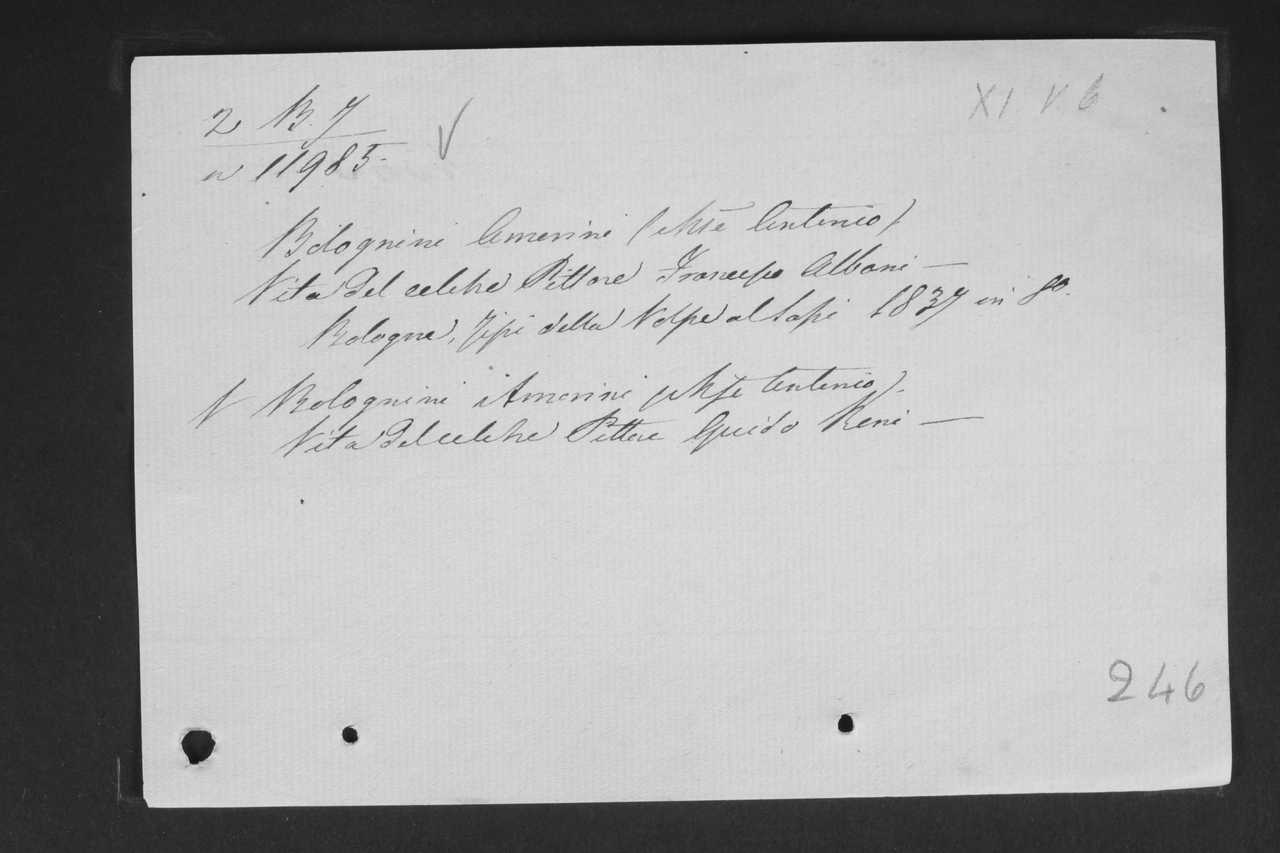 2 B. 7
XI V. 6
n 11985.
Bolognini Amorini (Mse Antonio)
Vita del celebre Pittore Francesco Albani —
Bologna, Tipi della Volpe al Sassi 1837 in 8o.
V Bolognini Amorini (Mse Antonio).
Vita del celebre Pittore Guido Reni —
246